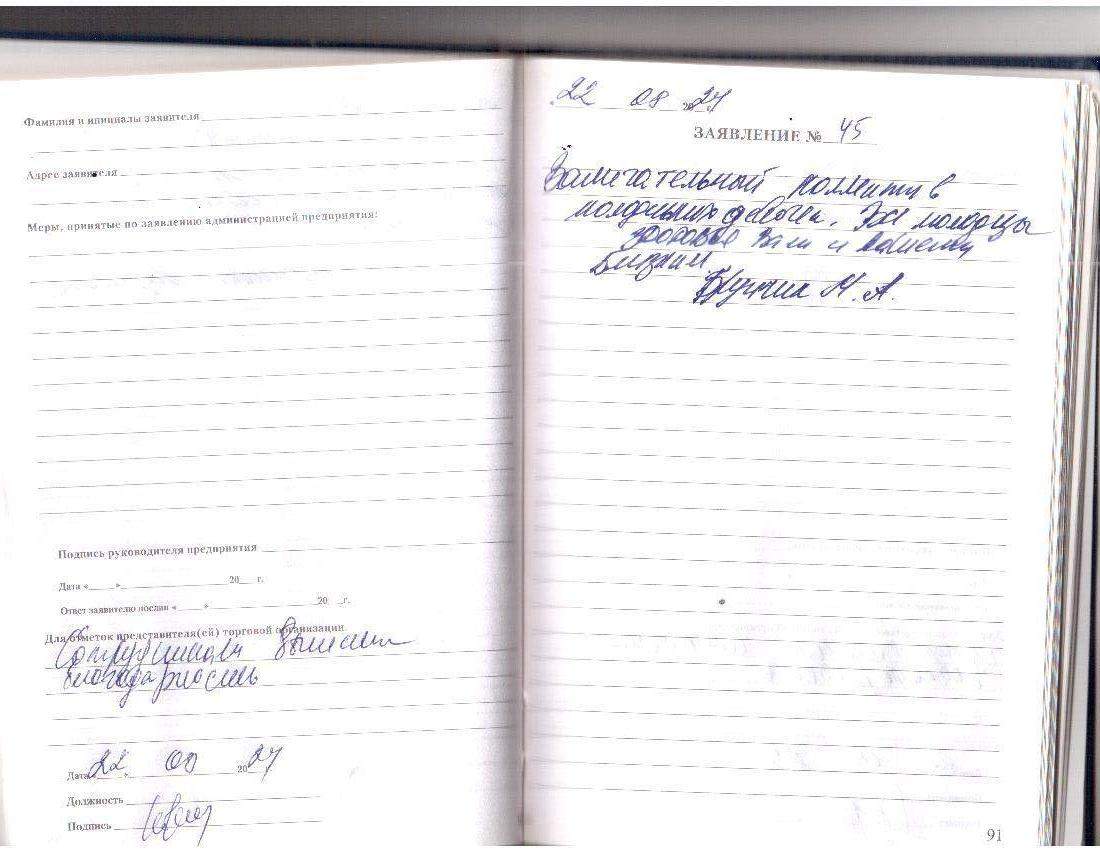 Фамилия и инициалы заявителя
Адрес заявителя
Меры, принятые по заявлению администрацией предприятия:
Подпись руководителя предприятия
Дата « » 20 г.
Ответ заявителю послан « » 20 г.
Для отметок представителя(ей) торговой организации
Сотрудникам
благодарность
Дата 22 » 08 2024
Должность
Подпись
22 08 2024
ЗАЯВЛЕНИЕ № 45
Замечательный коллектив
девочки. Все молодцы
здоровья Вам и вашему
М. А.
91